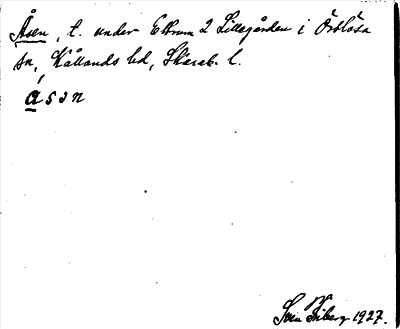 Åsen, t. under Ettrum 2 Lillegården i Örslösa
sn, Kållands hd, Skarab. l.
ásɜn
Sven Friberg 1927.